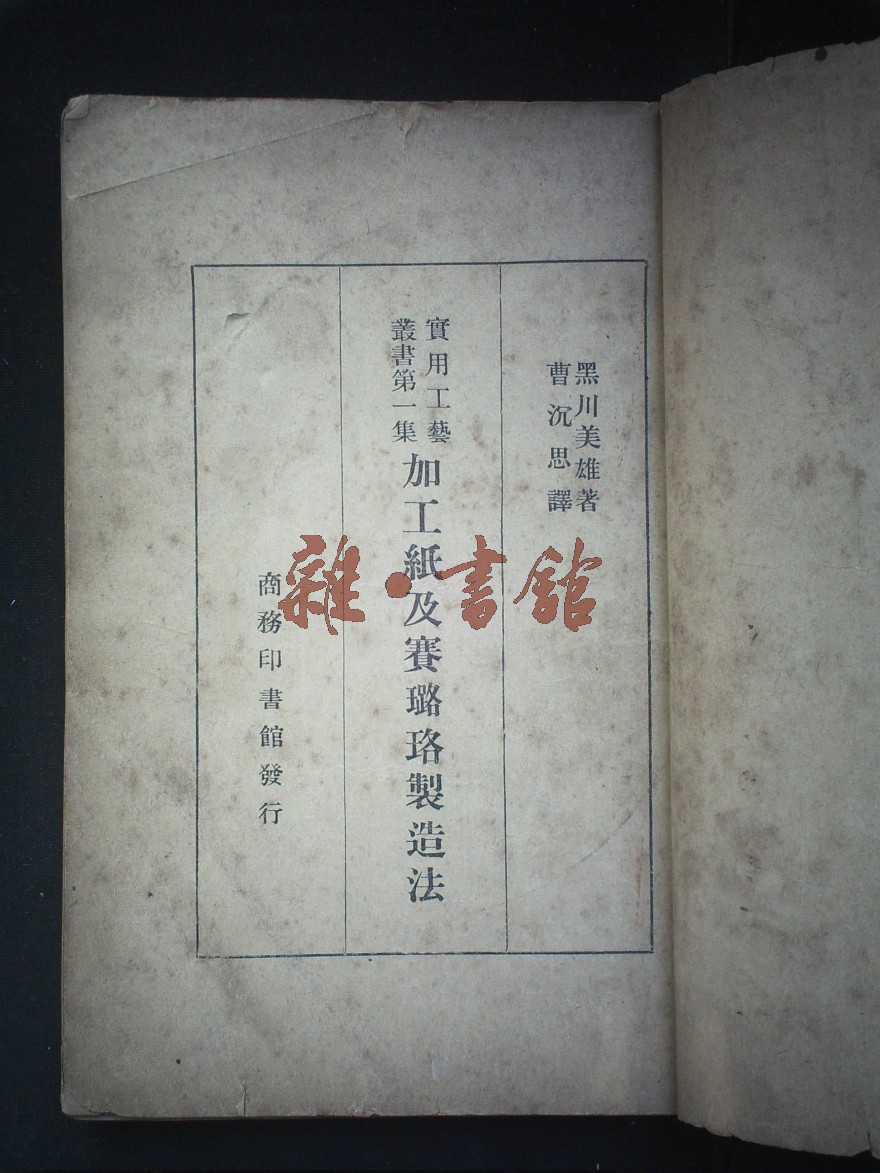 黑川美雄著
曹沉思譯
實用工藝
叢書第一集
加工紙及賽璐珞製造法
商務印書館發行
雜·書館